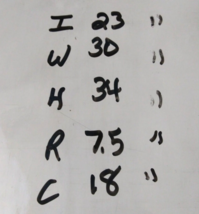 I 23 "
W 30 "
H 34 "
R 7.5 "
C 18 "